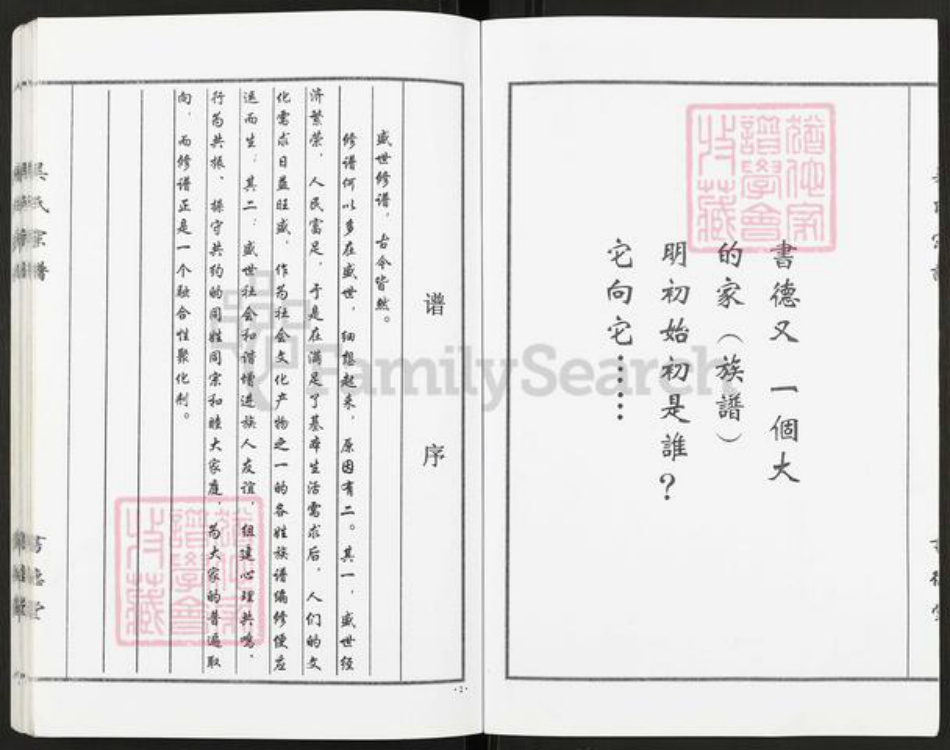 書德又一個大
的家（族譜）
明初始初是誰？
它向它……
猶他家
譜學會
收藏
谱序
盛世修谱，古今皆然。
修谱何以多在盛世，细想起来，原因有二。其一，盛世经
济繁荣，人民富足，于是在满足了基本生活需求后，人们的文
化需求日益旺盛，作为社会文化产物之一的各姓族谱编修便应
运而生；其二：盛世社会和谐增进族人友谊，组建心理共鸣、
行为共振、操守共约的同姓同宗和睦大家庭，为大家的普遍取
向，而修谱正是一个融合性聚化剂。
猶他家
譜學會
收藏
·2·
FamilySearch